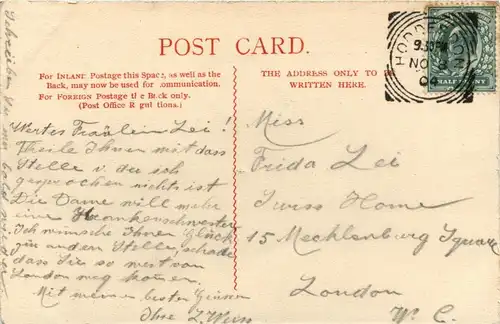 POST CARD.
For INLAND Postage this Space, as well as the
Back, may now be used for communication.
For FOREIGN Postage the Back only.
(Post Office Regulations.)
THE ADDRESS ONLY TO BE
WRITTEN HERE.
NO 8
04
HALFPENNY
Wertes Fräulein Lei!
Theile Ihnen mit dass
Stelle v. der ich
gesprochen nichts ist
Die Dame will mehr
eine Krankenschwester
Ich wünsche Ihnen Glück
zu anderen Stelle, schade
dass Sie so weit von
London weg kommen.
Mit meinen besten Grüssen
Ihre L.
Schreiben Sie mir bald wieder
Miss
Frida Lei
Swiss Home
15 Mecklenburg Square
London
W. C.